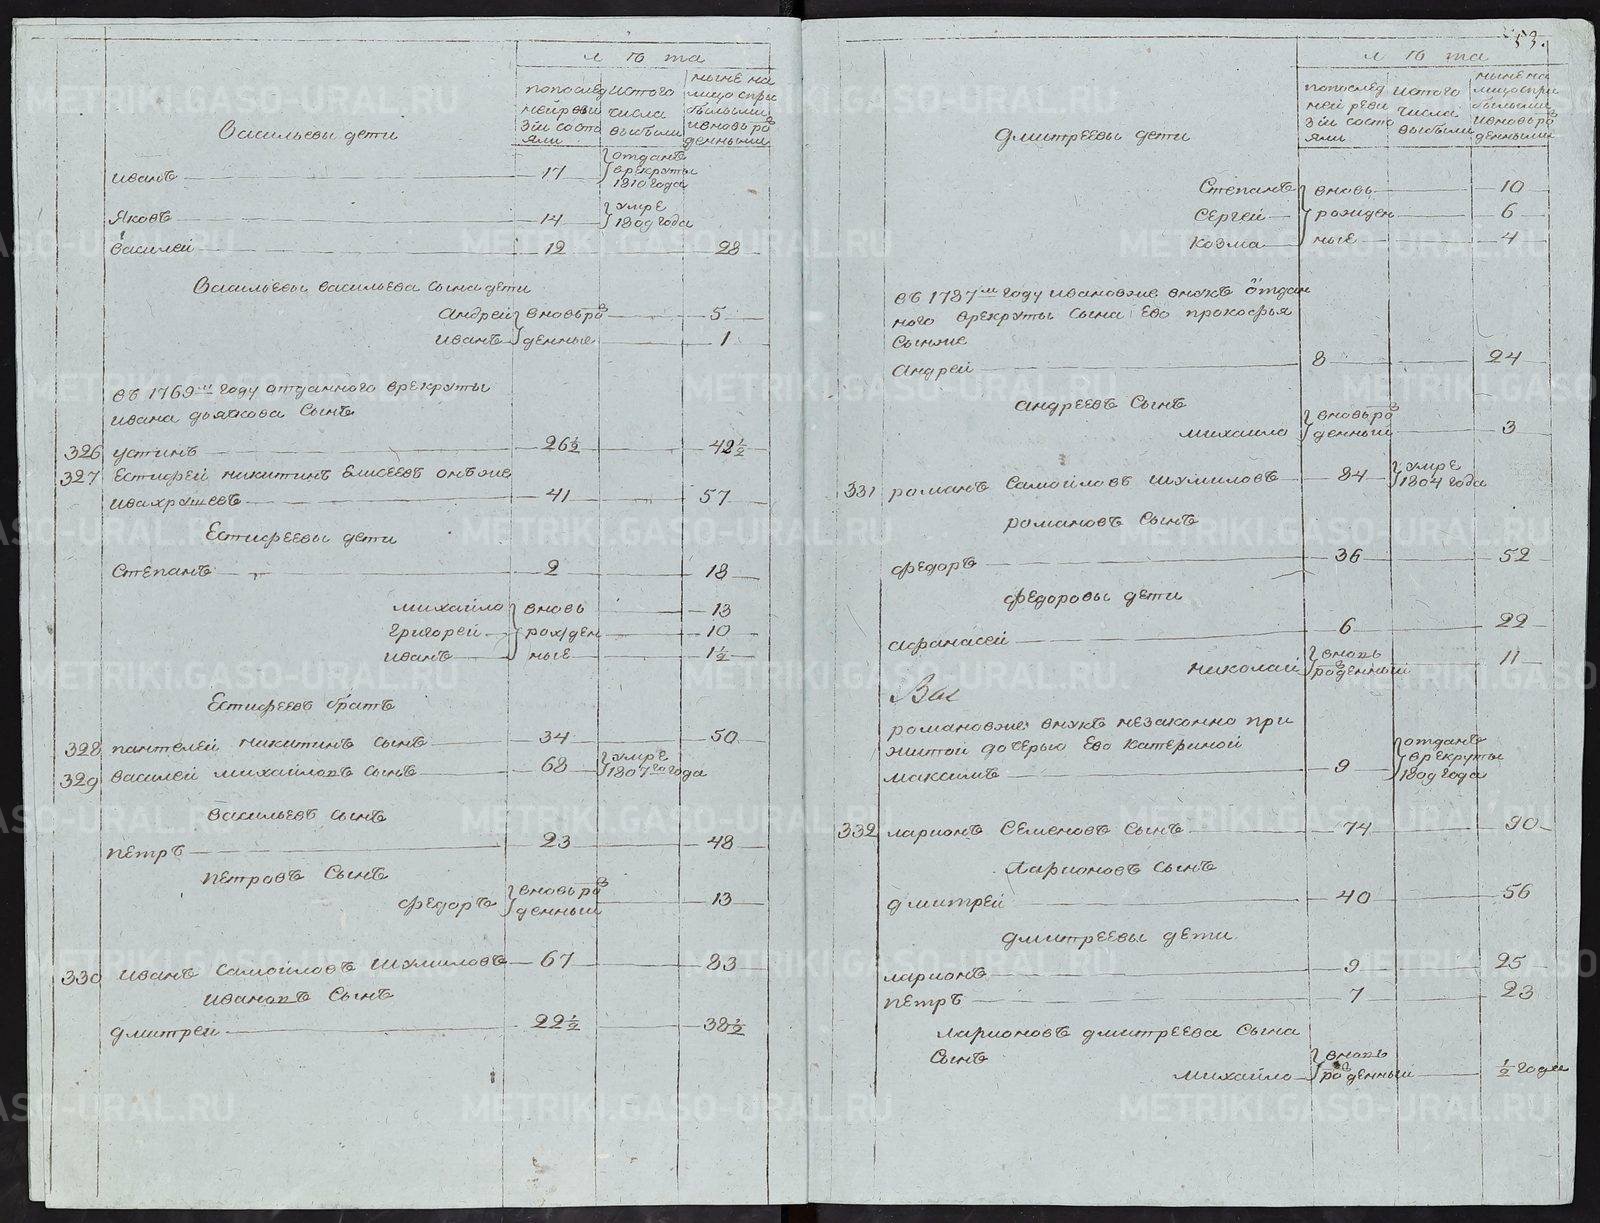 лѣта
попослед
ней реви
зіи состо
яли
истого
числа
выбыли
ныне на
лицо спри
былыми
ивновь ро
жденными
Васильевы дети
иванъ 17 отданъ
врекруты
1810 года
Яковъ 14 умре
1809 года
василей 12 28
Васильевы васильева сына дети
андрей вновь ро 5
иванъ жденные 1
въ 1769м году отданного врекруты
ивана дьячкова сынъ
326 устинъ 26½ 42½
327 Естифей никитинъ Елисеевъ онъже
ивахрушевъ 41 57
Естифеевы дети
Степанъ 2 18
михайло вновь 13
григорей рожден 10
иванъ ные 1½
Естифеевъ братъ
328 пантелей никитинъ сынъ 34 50
329 василей михайловъ сынъ 68 умре
1807го года
васильевъ сынъ
петръ 23 48
петровъ сынъ
федоръ вновь ро 13
жденный
330 иванъ Самойловъ шумиловъ 67 83
ивановъ сынъ
дмитрей 22½ 38½
53.
лѣта
попослед
ней реви
зіи состо
яли
истого
числа
выбыли
ныне на
лицо спри
былыми
ивновь ро
жденными
дмитреевы дети
Степанъ вновь 10
Сергей рожден 6
козма ные 4
въ 1787м году ивановже внукъ отдан
ного врекруты сына Ево прокофья
сынже
андрей 8 24
андреевъ сынъ
михайло вновь ро 3
жденный
331 романъ Самойловъ шумиловъ 84 умре
1804 года
романовъ сынъ
федоръ 36 52
федоровы дети
афанасей 6 22
николай вновь 11
рожденный
Вас
романовже внукъ незаконно при
житой дочерью Ево катериной
максимъ 9 отданъ
врекруты
1809 года
332 ларионъ Семеновъ сынъ 74 90
Ларионовъ сынъ
дмитрей 40 56
дмитреевы дети
ларионъ 9 25
петръ 7 23
ларионовъ дмитреева сына
сынъ
михайло вновь
рожденный ½ года
METRIKI.GASO-URAL.RU